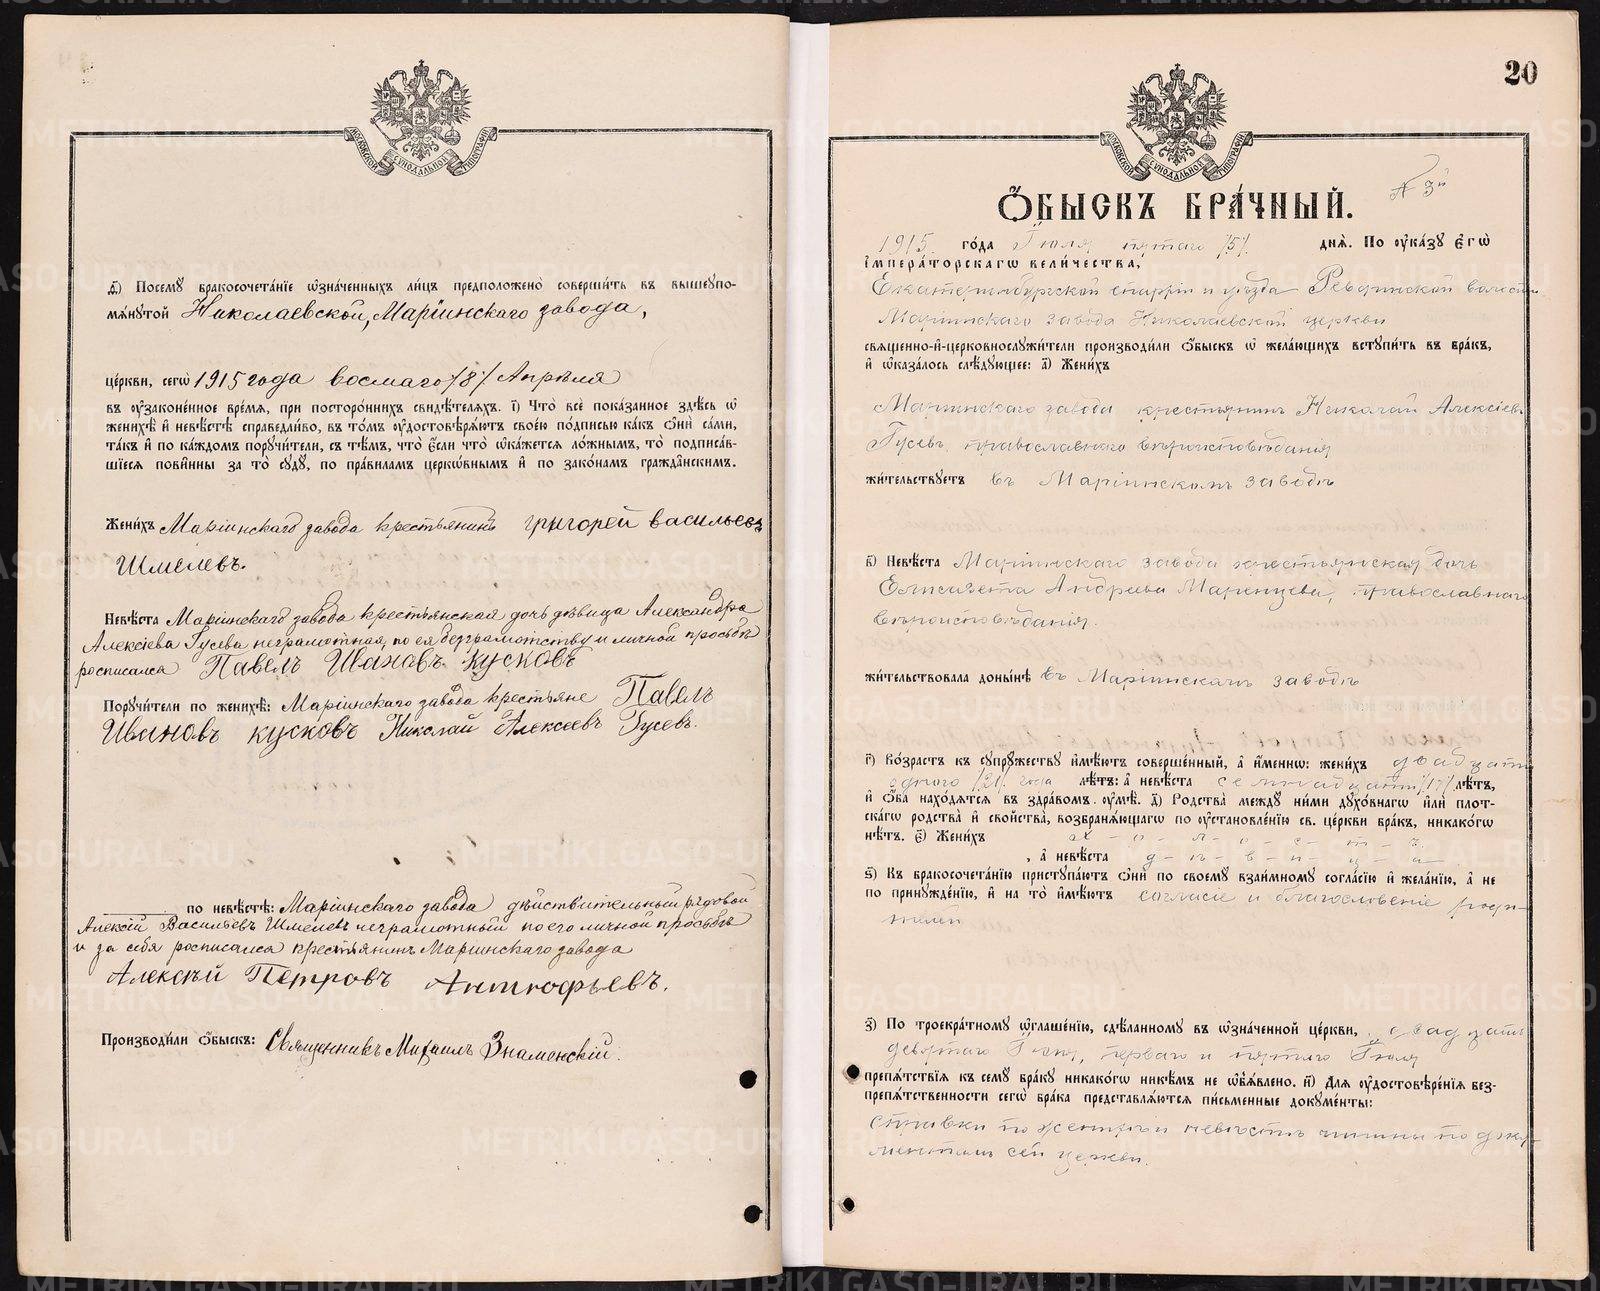 МОСКОВСКОЙ СѴНОДАЛЬНОЙ ТИПОГРАФІИ
д҃і) Посемꙋ бракосочета́нїе ѡ҆зна́ченныхъ ли́цъ предположено̀ соверши́ть въ вышеꙋпо-
мѧ́нꙋтой Николаевской, Маріинскаго завода,
це́ркви, сегѡ̀ 1915 года восмаго /8/ Апрѣля
въ ᲂу҆зако́ненное вре́мѧ, при посторо́ннихъ свидѣ́телѧхъ. і҃) Что̀ всѐ пока́занное здѣ́сь ѡ҆
женихѣ̀ и҆ невѣ́стѣ справедли́во, въ то́мъ ᲂу҆достовѣрѧ́ютъ свое́ю по́дписью ка́къ ѻ҆нѝ са́ми,
та́къ и҆ по ка́ждомъ порꙋчи́тели, съ тѣ́мъ, что̀ є҆́сли что̀ ѡ҆ка́жетсѧ ло́жнымъ, то̀ подписа́в-
шїесѧ пови́нны за то̀ сꙋдꙋ̀, по пра́виламъ церкѡ́внымъ и҆ по зако́намъ гражда̑нскимъ.
Жени́хъ Маріинскаго завода крестьянинъ григорей васильевъ
Шмелевъ.
Невѣ́ста Маріинскаго завода крестьянская дочь дѣвица Александра
Алексіева Гусева неграмотная, по ея безграмотству и личной просьбѣ
росписался Павелъ Ивановъ кусковъ
Порꙋчи́тели по женихѣ̀: Маріинскаго завода крестьяне Павелъ
Ивановъ кусковъ Николай Алексеевъ Гусевъ.
по невѣ́стѣ: Маріинскаго завода дѣйствительный рядовой
Алексій Васильевъ Шмелевъ неграмотный по его личной просьбѣ
и за себя росписался крестьянинъ Маріинскаго завода
Алексѣй Петровъ Антгофьевъ.
Производи́ли ѻ҆́быскъ: Священникъ Михаилъ Знаменскій.
20
МОСКОВСКОЙ СѴНОДАЛЬНОЙ ТИПОГРАФІИ
№ 3й
Ѻ҆́БЫСКЪ БРА́ЧНЫЙ.
1915 го́да Іюля пятаго /5/ днѧ̀. По ᲂу҆ка́зꙋ є҆гѡ̀
і҆мпера́торскагѡ вели́чества,
Екатеринбургской епархіи и уѣзда Ревдинской волости
Маріинскаго завода Николаевской церкви
свѧще́нно-и҆-церковнослꙋжи́тели производи́ли ѻ҆́быскъ ѡ҆ жела́ющихъ встꙋпи́ть въ бра́къ,
и҆ ѡ҆каза́лось слѣ́дꙋющее: а҃) Жени́хъ
Маріинскаго завода крестьянинъ Николай Алексіевъ
Гусевъ, православнаго вѣроисповѣданія
жи́тельствꙋетъ въ Маріинскомъ заводѣ
в҃) Невѣ́ста Маріинскаго завода крестьянская дочь
Елисавета Андреева Маренцева, православнаго
вѣроисповѣданія.
жи́тельствовала доны́нѣ въ Маріинскомъ заводѣ
г҃) Во́зрастъ къ сꙋпрꙋ́жествꙋ и҆мѣ́ютъ соверше́нный, а҆ и҆́менно: жени́хъ двадцати
одного /21/ года лѣ́тъ: а҆ невѣ́ста семнадцати /17/ лѣ́тъ,
и҆ ѻ҆́ба нахо́дѧтсѧ въ здра́вомъ ᲂу҆мѣ̀. д҃) Родства̀ междꙋ̀ ни́ми дꙋхо́внагѡ и҆лѝ плот-
ска́гѡ родства̀ и҆ сво́йства̀, возбранѧ́ющагѡ по ᲂу҆становле́нїю св. це́ркви бра́къ, никако́гѡ
нѣ́тъ. є҃) Жени́хъ х – о – л – о – с – т – ъ.
, а҆ невѣ́ста д – ѣ – в – и – ц – а – .
ѕ҃) Къ бракосочета́нїю пристꙋпа́ютъ ѻ҆нѝ по своемꙋ̀ взаи́мномꙋ согла́сїю и҆ жела́нїю, а҆ не
по принꙋжде́нїю, и҆ на то̀ и҆мѣ́ютъ согласіе и благословеніе роди-
телей
з҃) По троекра́тномꙋ ѡ҆глаше́нїю, сдѣ́ланномꙋ въ ѡ҆зна́ченной це́ркви, двадцать
девятаго Іюня, перваго и пятаго Іюля
препѧ́тствїѧ къ семꙋ̀ бра́кꙋ никако́гѡ никѣ́мъ не ѡ҆б̾ѧ́влено. и҃) Длѧ ᲂу҆достовѣ́ренїѧ без-
препѧ́тственности сегѡ̀ бра́ка представлѧ́ютсѧ пи́сьменные докꙋме́нты:
справки по женихѣ и невѣстѣ чинимы по доку-
ментамъ сей церкви.